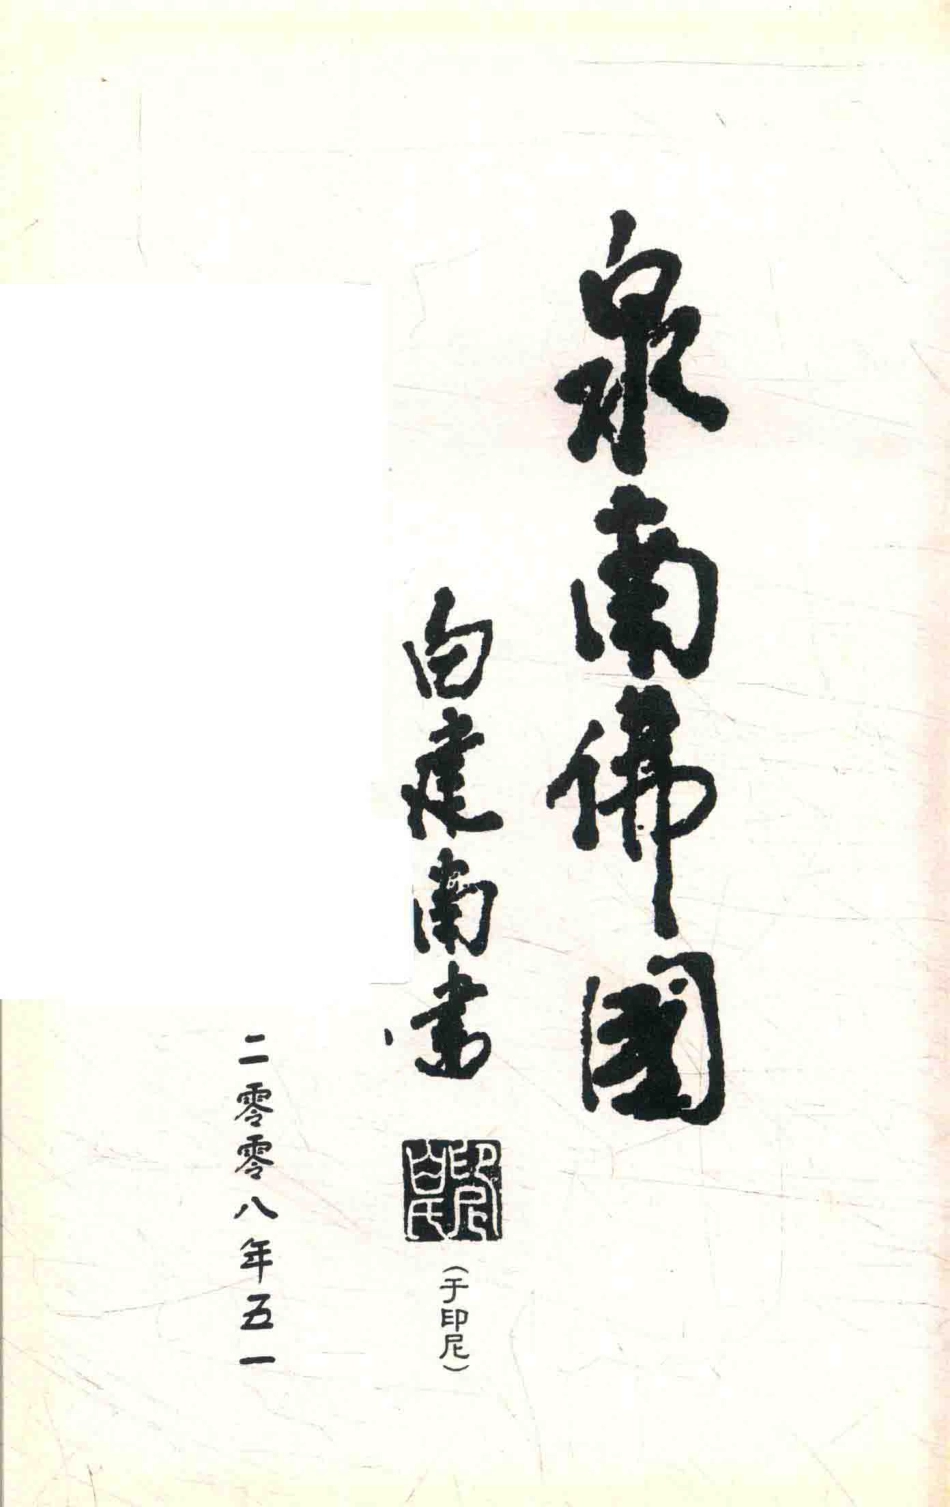 泉南佛國
白建南書
(于印尼)
二零零八年五一